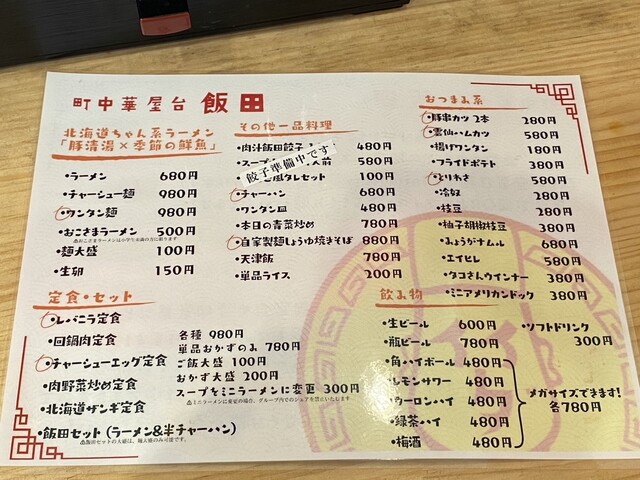 町中華屋台 飯田
北海道ちゃん系ラーメン
「豚清湯×季節の鮮魚」
・ラーメン 680円
・チャーシュー麺 980円
・ワンタン麺 980円
・おこさまラーメン 500円
・麺大盛 100円
・生卵 150円
その他一品料理
・肉汁飯田餃子 480円
・スープ 人前 580円
餃子準備中です
風タレセット 100円
・チャーハン 680円
・ワンタン皿 480円
・本日の青菜炒め 780円
・自家製麺しょうゆ焼きそば 880円
・天津飯 780円
・単品ライス 200円
おつまみ系
・豚串カツ 2本 280円
・雲仙ハムカツ 580円
・揚げワンタン 180円
・フライドポテト 380円
・とりわさ 580円
・冷奴 280円
・枝豆 280円
・柚子胡椒枝豆 380円
・みょうがナムル 680円
・エイヒレ 580円
・タコさんウインナー 380円
・ミニアメリカンドック 380円
定食・セット
・レバニラ定食
・回鍋肉定食
・チャーシューエッグ定食
・肉野菜炒め定食
・北海道ザンギ定食
・飯田セット (ラーメン&半チャーハン)
各種 980円
単品おかずのみ 780円
ご飯大盛 100円
おかず大盛 200円
スープをミニラーメンに変更 300円
飲み物
・生ビール 600円
・瓶ビール 780円
・角ハイボール 480円
・レモンサワー 480円
・ウーロンハイ 480円
・緑茶ハイ 480円
・梅酒 480円
・ソフトドリンク
300円
メガサイズできます!
各780円